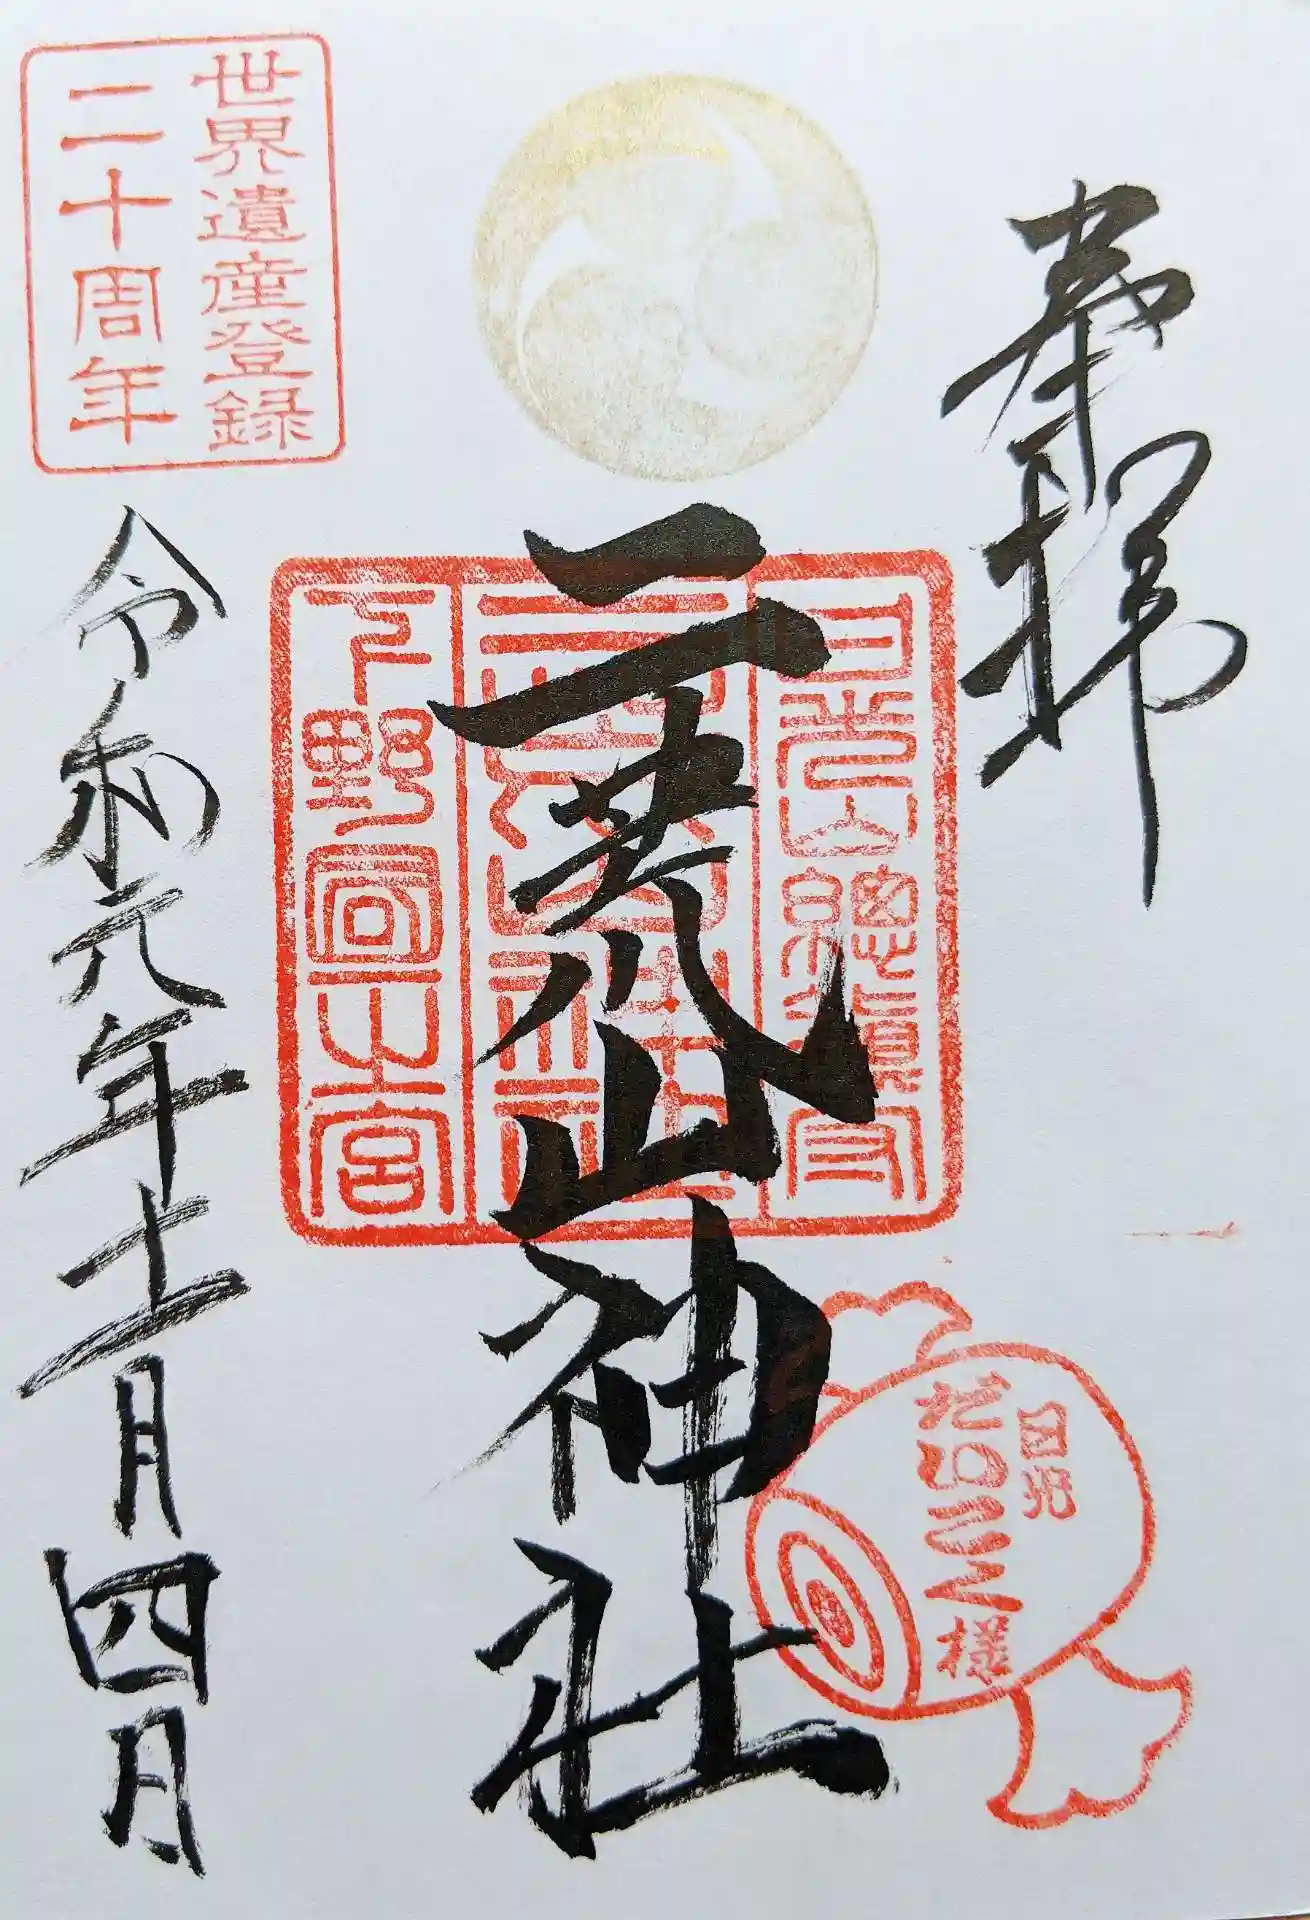 奉拝
日光山總鎮守
二荒山神社
下野國一之宮
日光
だいこく様
世界遺産登録
二十周年
令和元年十一月四日